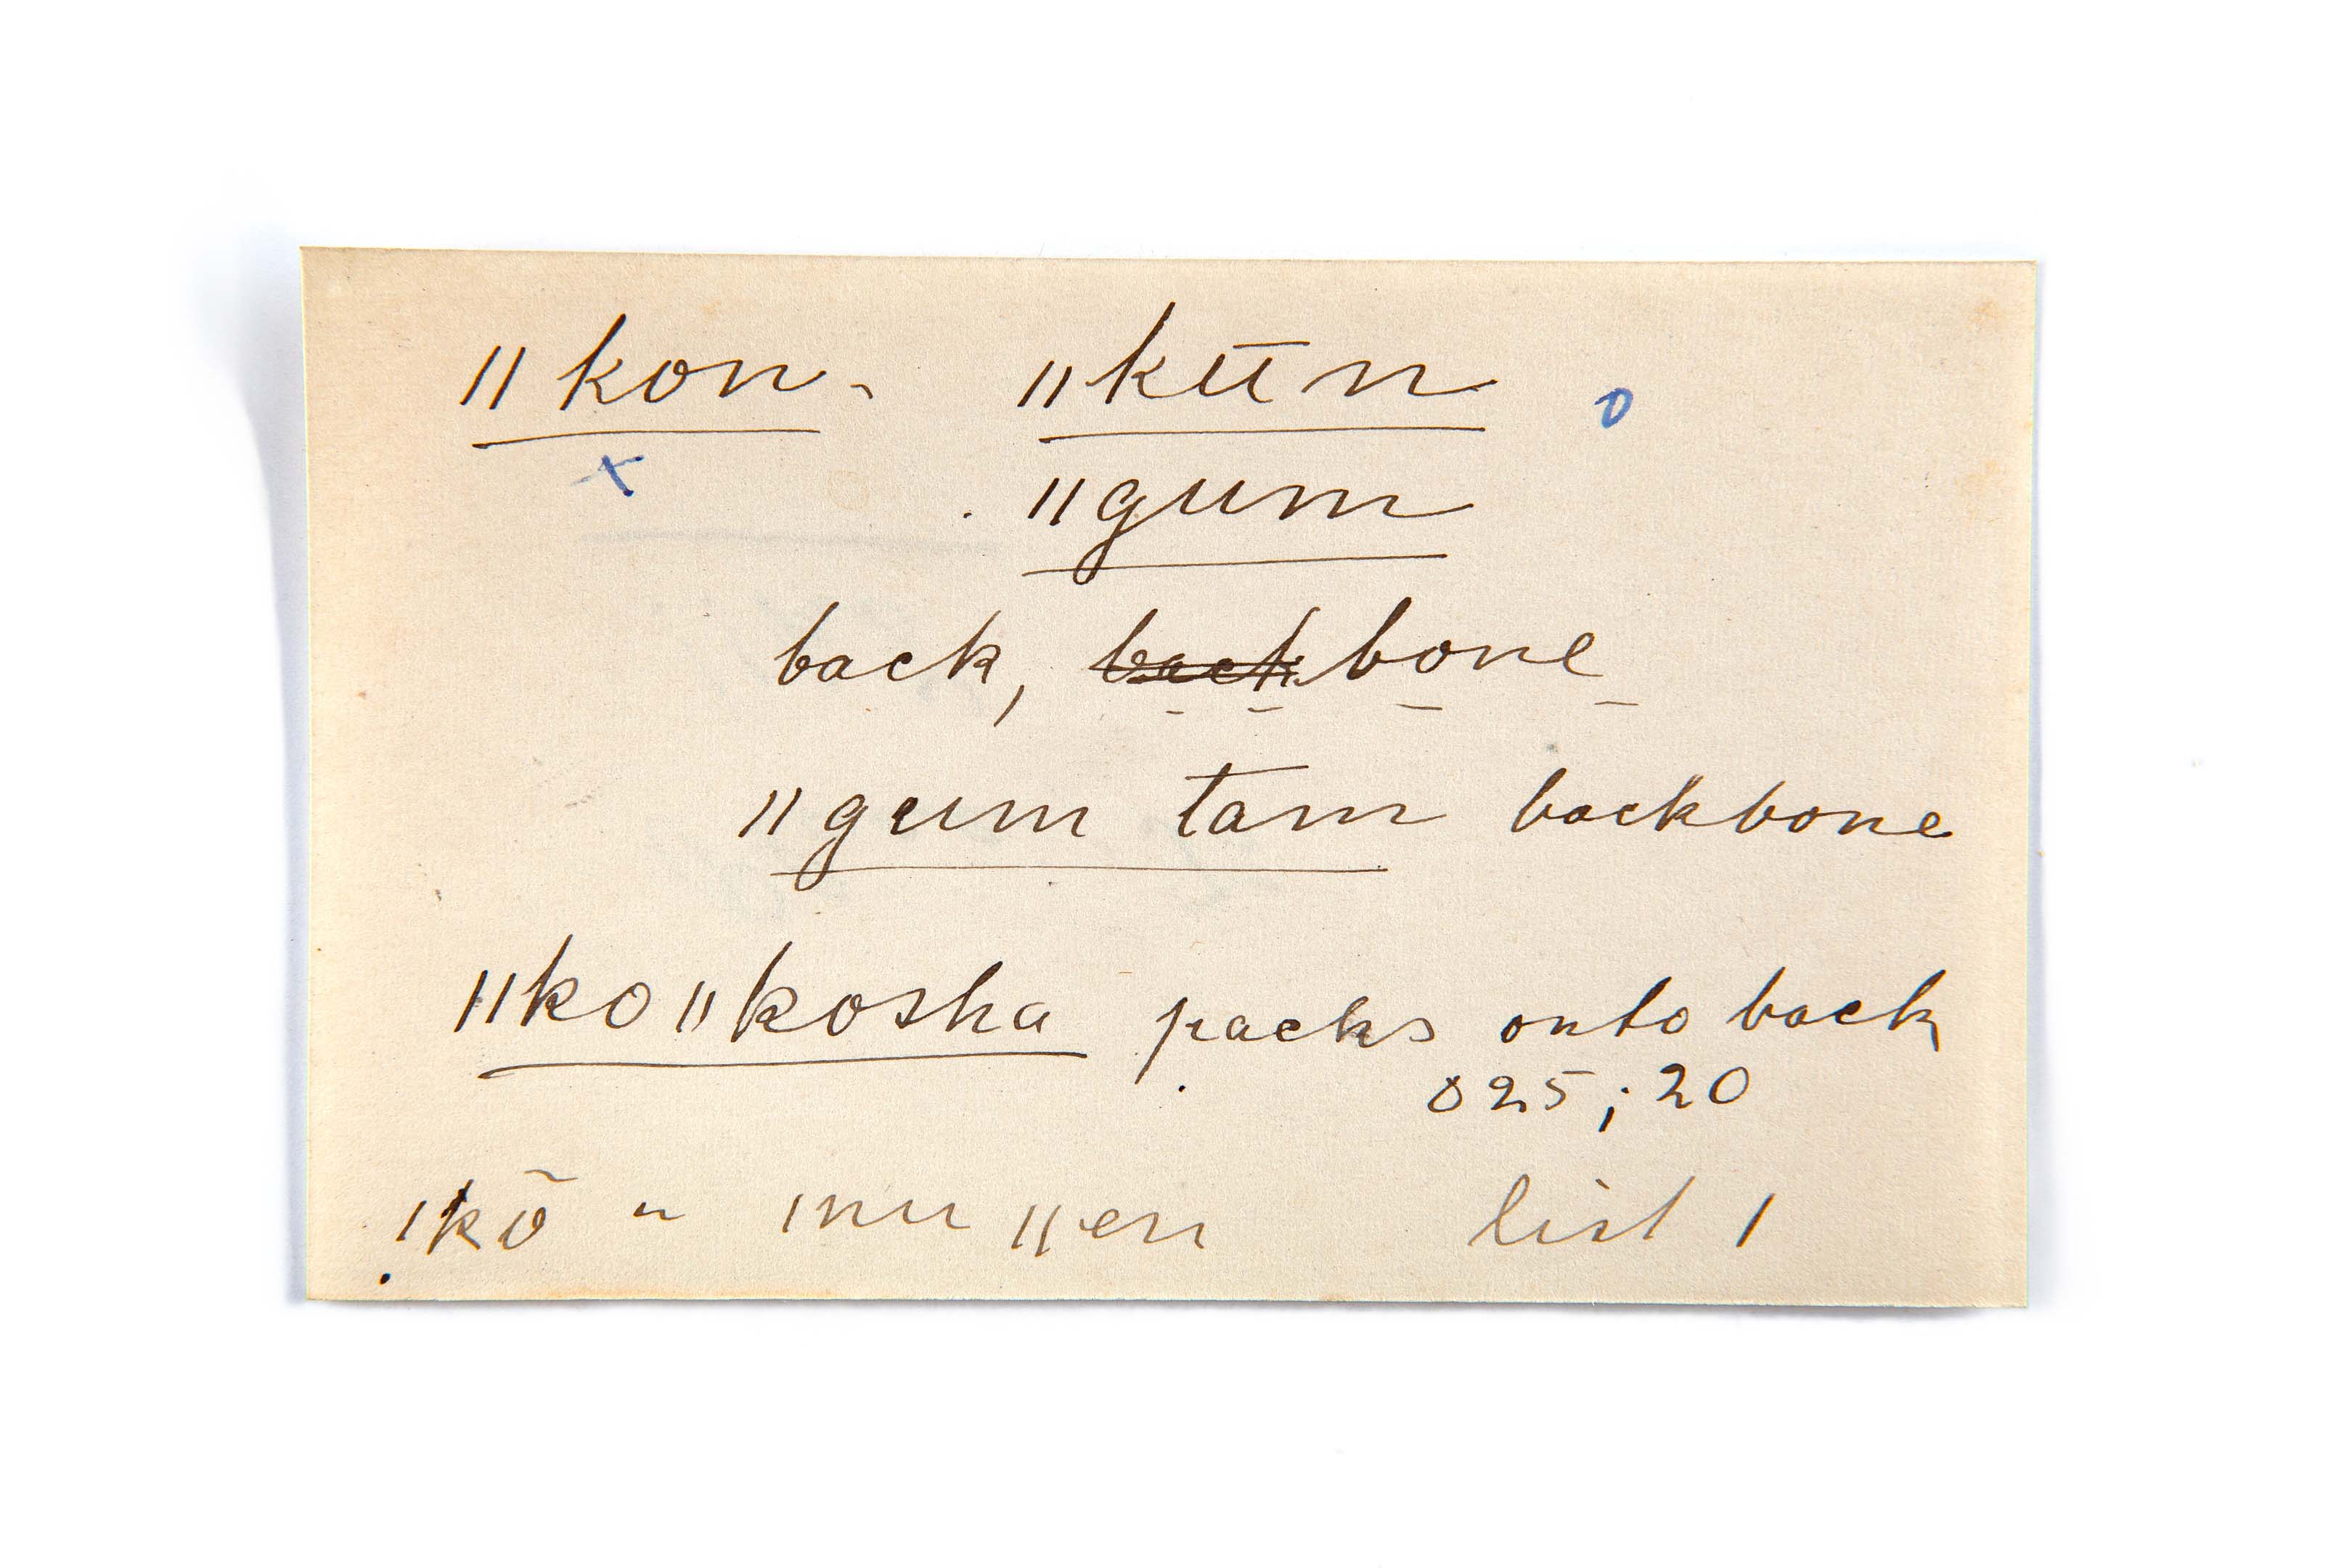 ǁkon- ǁkūn o
x
ǁgum
back, back bone
ǁgum tam backbone
ǁkoǁkosha packs onto back
025; 20
ǀkõ - ǀnu ǁen list 1